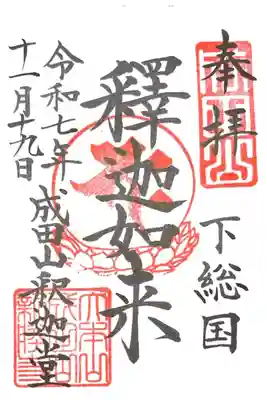 奉拝
下総国
釋迦如来
成田山釈迦堂
令和七年
十一月十九日